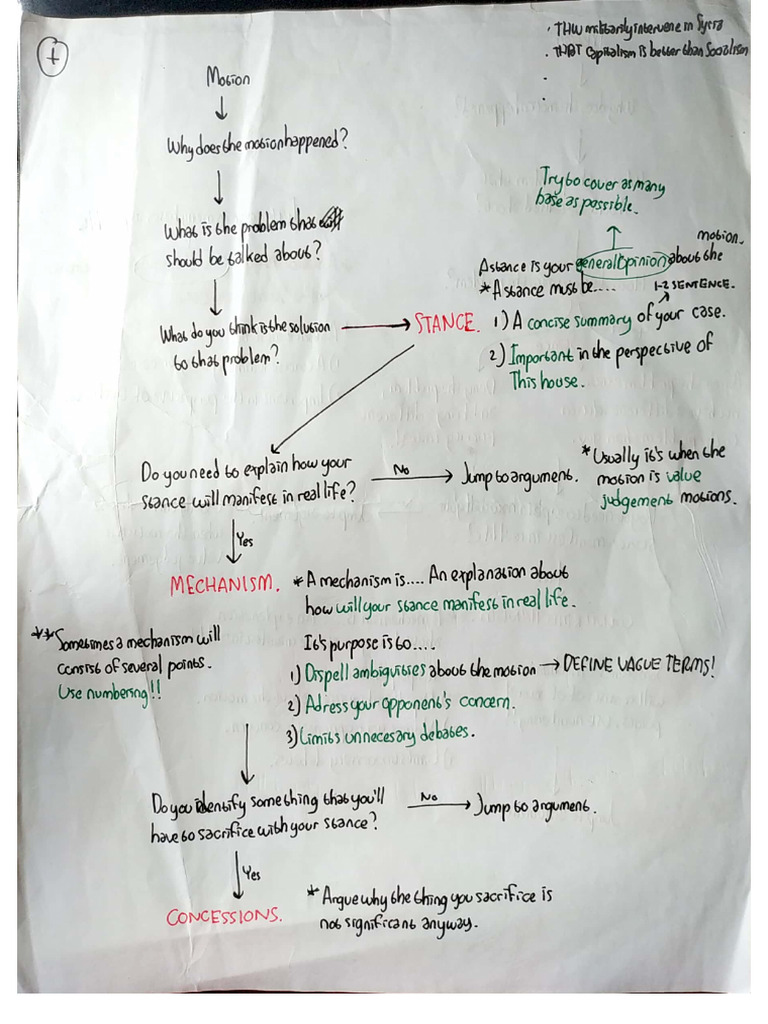 +
· THW militarily intervene in Syria
· THBT Capitalism is better than Socialism
·
·
Motion
Why does the motion happened?
What is the problem that
should be talked about?
What do you think is the solution
to that problem?
STANCE.
Try to cover as many
base as possible.
A stance is your general opinion about the
motion.
* A stance must be....
1-2 SENTENCE.
1) A concise summary of your case.
2) Important in the perspective of
This house.
Do you need to explain how your
stance will manifest in real life?
No
Jump to argument.
* Usually it's when the
motion is value
judgement motions.
Yes
MECHANISM.
* A mechanism is.... An explanation about
how will your stance manifest in real life.
** Sometimes a mechanism will
consist of several points.
Use numbering!!
It's purpose is to....
1) Dispell ambiguities about the motion → DEFINE VAGUE TERMS!
2) Adress your opponent's concern.
3) Limits unnecesary debates.
Do you identify something that you'll
have to sacrifice with your stance?
No
Jump to argument.
Yes
CONCESSIONS.
* Argue why the thing you sacrifice is
not significant anyway.